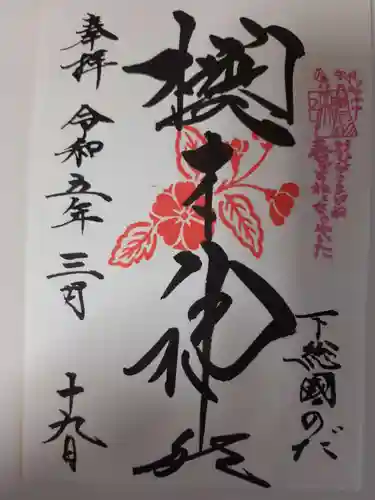 下総國のだ
櫻木神社
奉拝 令和五年 三月 十九日